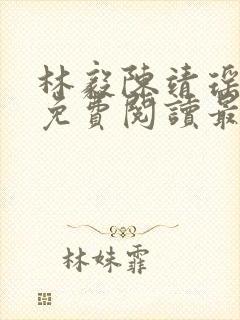 林毅陳靖瑤
免費閱讀最
林妹霏